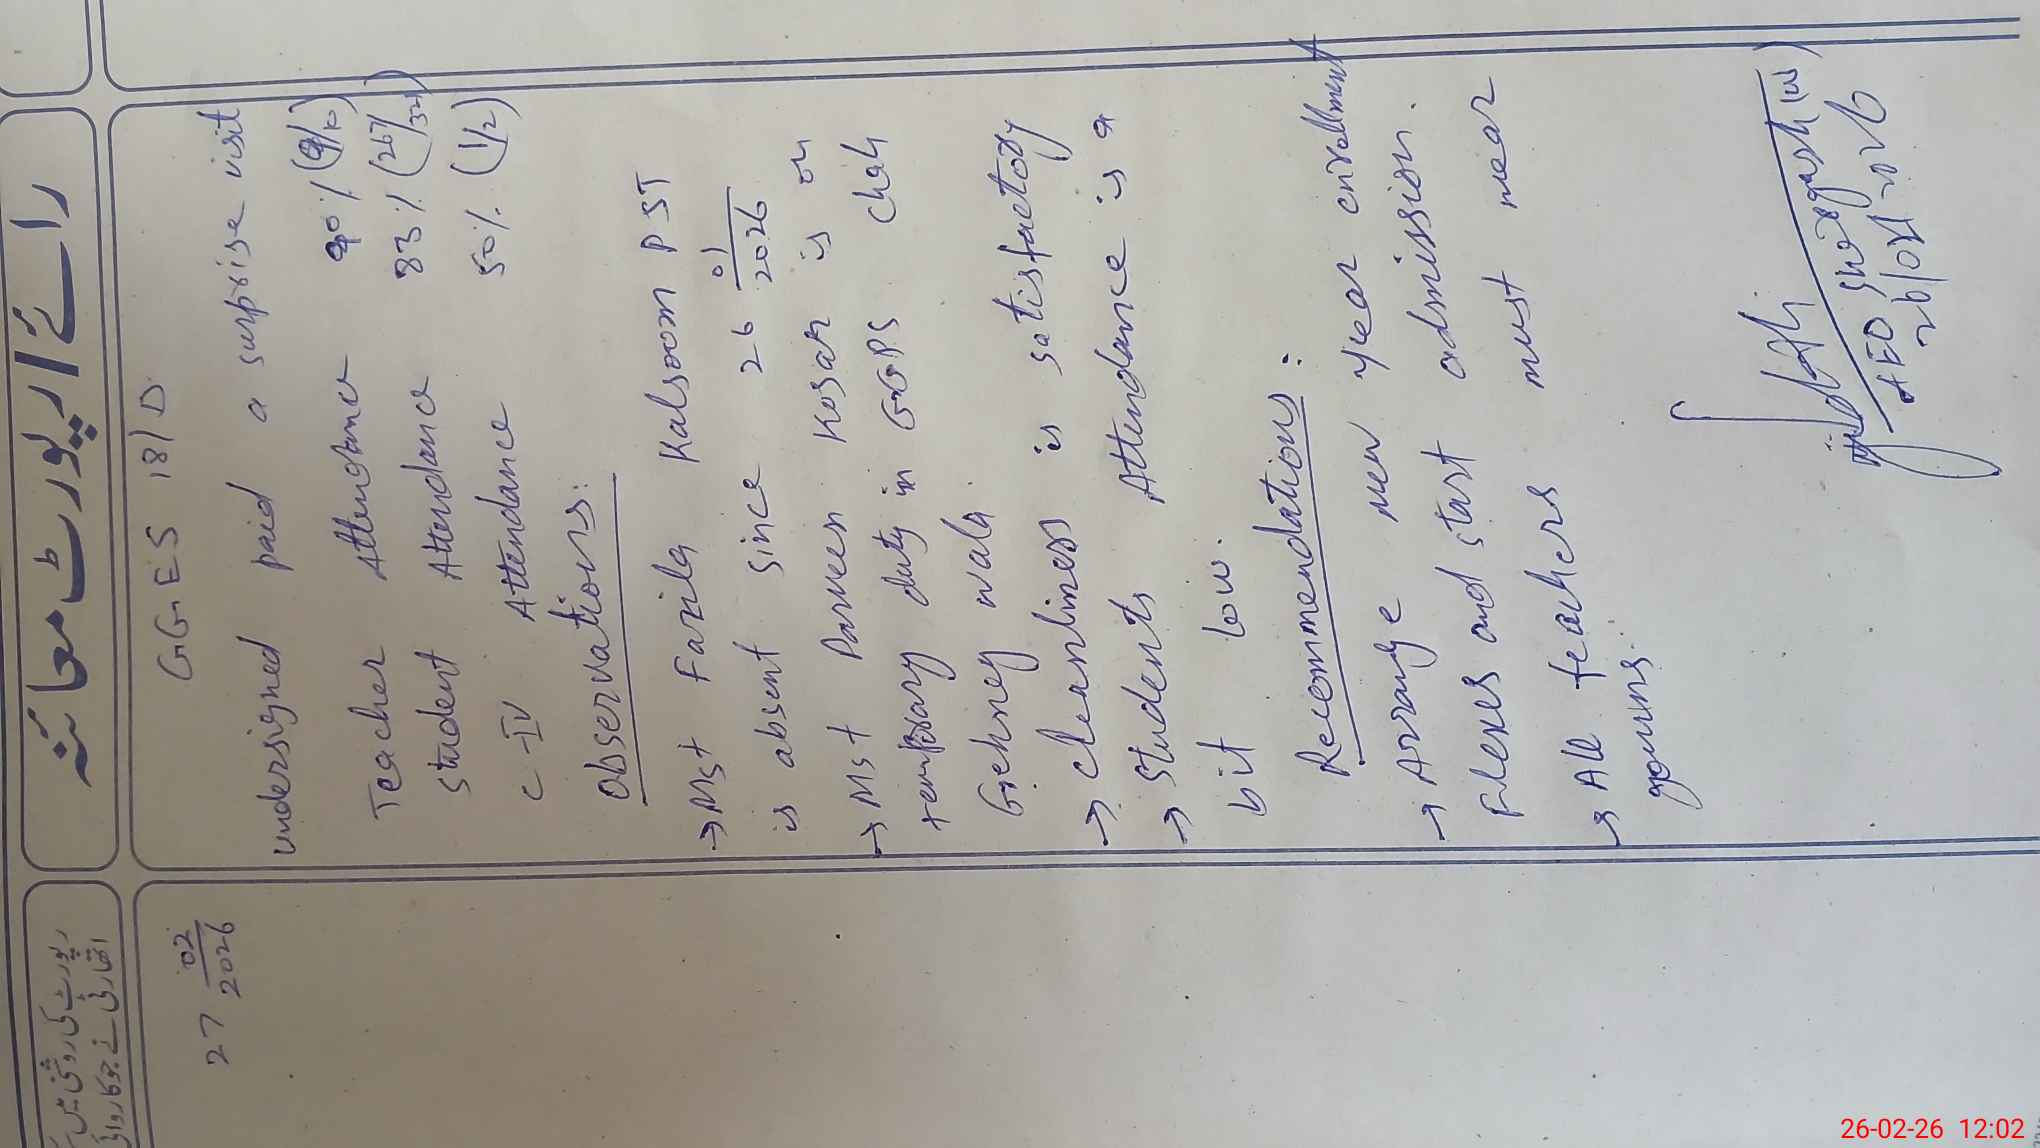 رائے / رپورٹ معائنہ
رپورٹ کی روشنی میں
اتھارٹی نے جو کارروائی
27 02/2026
GGES 18/D
undersigned paid a surprise visit
Teacher Attendance 90% (9/10)
Student Attendance 83% (267/321)
C-IV Attendance 50% (1/2)
Observations:
→ Mst Fazila Kalsoom PST
is absent since 26 01/2026
→ Mst Parveen Kosar is on
temporary duty in GGPS Chah
wala
→ Cleanliness is satisfactory
→ Students Attendance is a
bit low.
Recommendations:
→ Arrange new year enrollment
Flexes and start admission.
→ All teachers must wear
gowns.
AEO (w)
26/02/2026
26-02-26 12:02